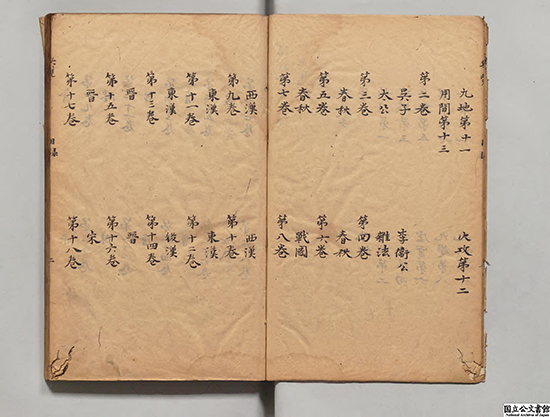 九地第十一　火攻第十二
用間第十三
第二巻
吳子　李衛公
太公　雜法
第三巻　第四巻
春秋　春秋
第五巻　第六巻
春秋　戰國
第七巻　第八巻
西漢　西漢
第九巻　第十巻
東漢　東漢
第十一巻　第十二巻
東漢　後漢
第十三巻　第十四巻
晉　晉
第十五巻　第十六巻
晉　宋
第十七巻　第十八巻
目錄　二
国立公文書館
National Archives of Japan